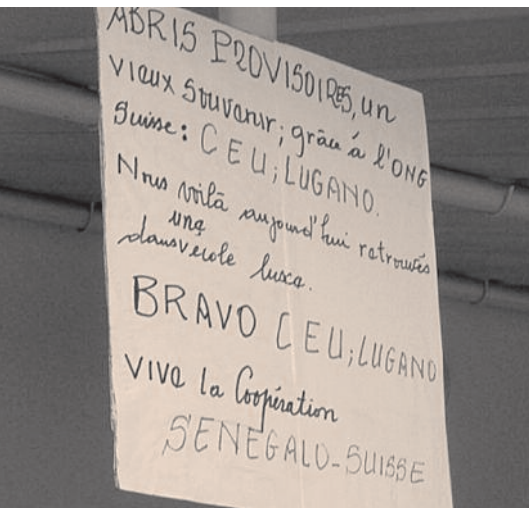 ABRIS PROVISOIRES, un
vieux souvenir; grâce à l'ONG
Suisse: CEU; LUGANO.
Nous voilà aujourd'hui retrouvés
dans une école luxe.
BRAVO CEU; LUGANO
VIVE la Coopération
SENEGALO-SUISSE